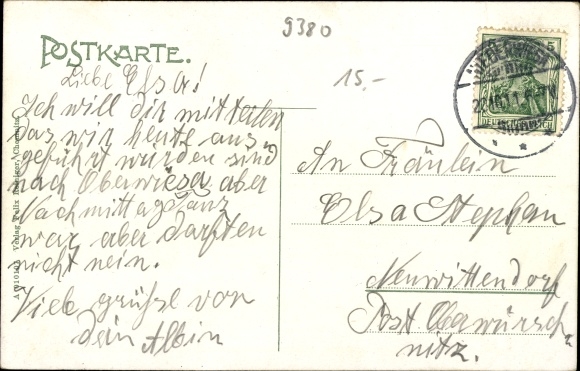 9380
POSTKARTE.
15,-
Liebe Elsa!
Ich will dir mitteilen
das wir heute aus
geführt wurden sind
nach Oberwiesa aber
Nachmittagstanz
war aber darften
nicht nein.
Viele grüße von
dein Albin
An Fräulein
Elsa Stephan
Neuwittendorf
Post Oberwürsch
nitz.